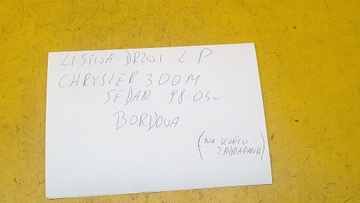 LISTWA DRZWI L.P
CHRYSLER 300M
SEDAN 98 04r
BORDOWA
(NA KOŃCU
ZADRAPANA)